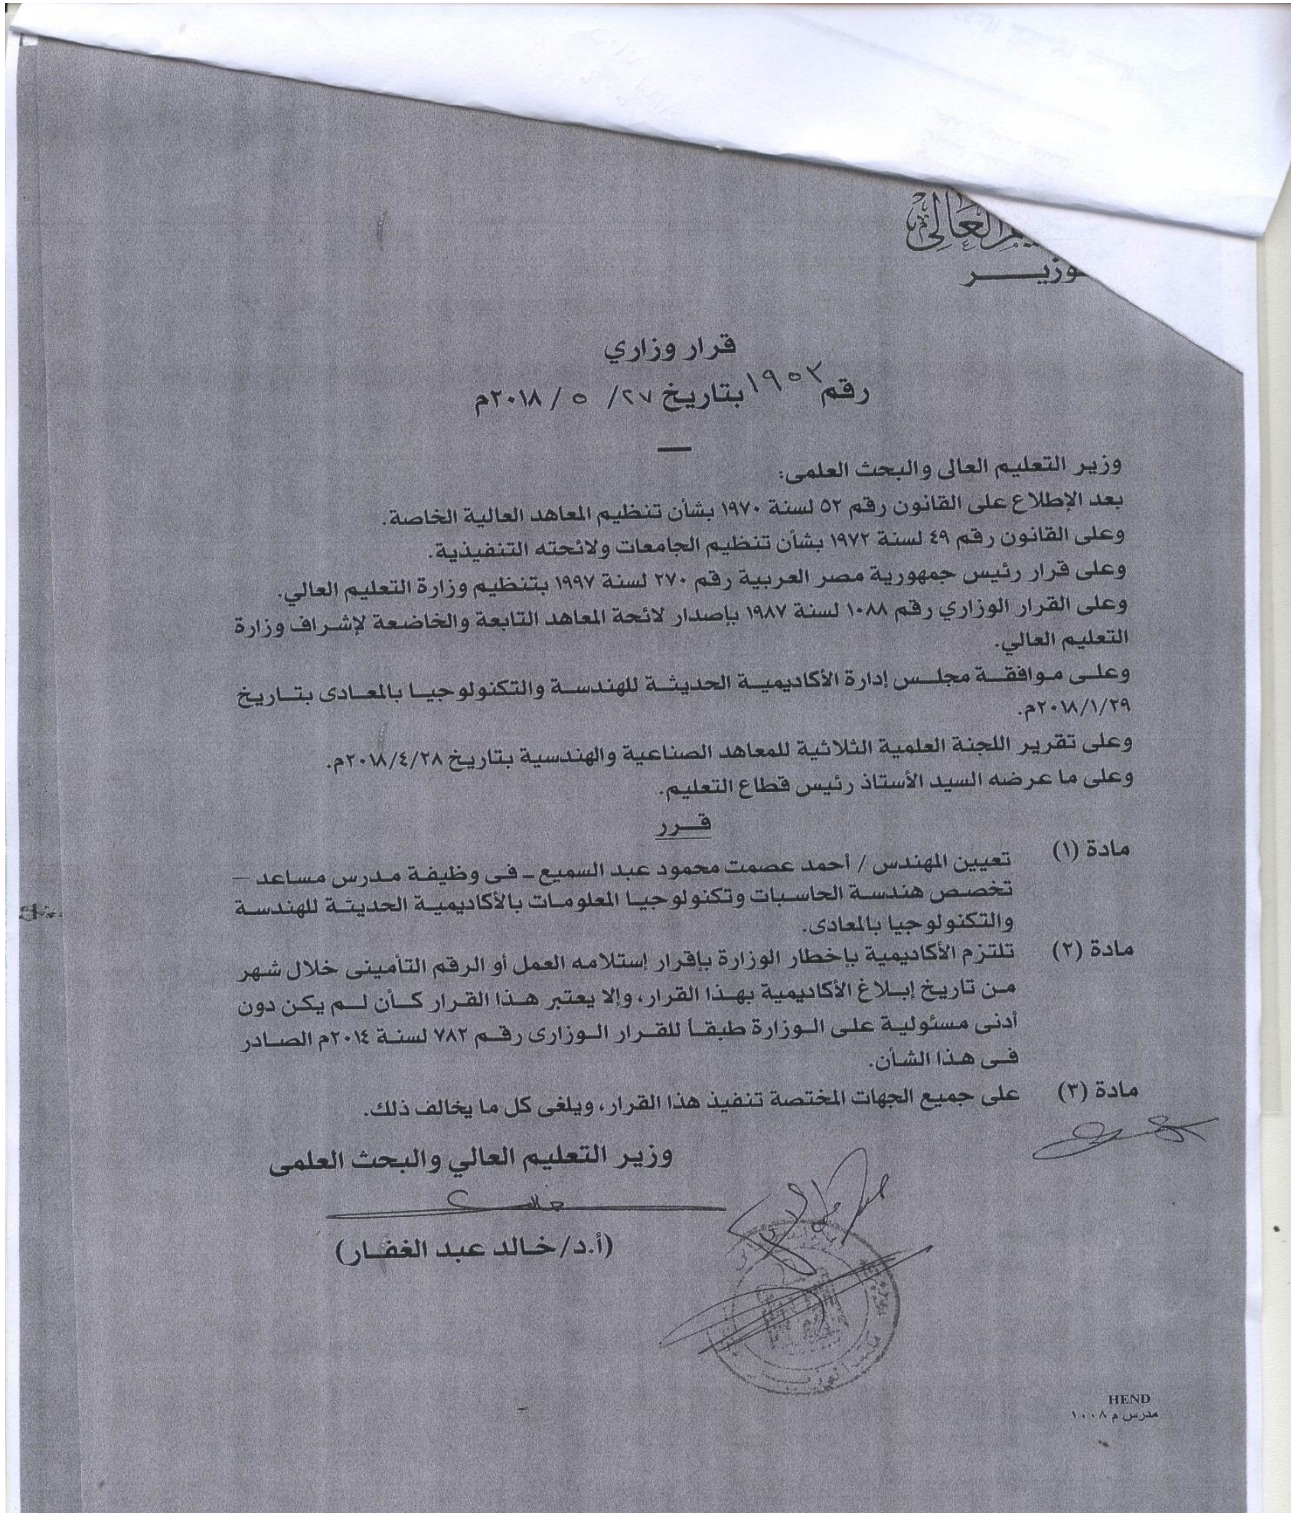 العالى
وزيــــر
قرار وزاري
رقم ١٩٥٢ بتاريخ ٢٧/ ٥ /٢٠١٨م
وزير التعليم العالى والبحث العلمى:
بعد الإطلاع على القانون رقم ٥٢ لسنة ١٩٧٠ بشأن تنظيم المعاهد العالية الخاصة.
وعلى القانون رقم ٤٩ لسنة ١٩٧٢ بشأن تنظيم الجامعات ولائحته التنفيذية.
وعلى قرار رئيس جمهورية مصر العربية رقم ٢٧٠ لسنة ١٩٩٧ بتنظيم وزارة التعليم العالي.
وعلى القرار الوزاري رقم ١٠٨٨ لسنة ١٩٨٧ بإصدار لائحة المعاهد التابعة والخاضعة لإشراف وزارة
التعليم العالي.
وعلى موافقة مجلس إدارة الأكاديمية الحديثة للهندسة والتكنولوجيا بالمعادى بتاريخ
٢٠١٨/١/٢٩م.
وعلى تقرير اللجنة العلمية الثلاثية للمعاهد الصناعية والهندسية بتاريخ ٢٠١٨/٤/٢٨م.
وعلى ما عرضه السيد الأستاذ رئيس قطاع التعليم.
قـــرر
مادة (١) تعيين المهندس / أحمد عصمت محمود عبد السميع – فى وظيفة مدرس مساعد –
تخصص هندسة الحاسبات وتكنولوجيا المعلومات بالأكاديمية الحديثة للهندسة
والتكنولوجيا بالمعادى.
مادة (٢) تلتزم الأكاديمية بإخطار الوزارة بإقرار إستلامه العمل أو الرقم التأمينى خلال شهر
من تاريخ إبلاغ الأكاديمية بهذا القرار، وإلا يعتبر هذا القرار كأن لم يكن دون
أدنى مسئولية على الوزارة طبقاً للقرار الوزارى رقم ٧٨٢ لسنة ٢٠١٤م الصادر
فى هذا الشأن.
مادة (٣) على جميع الجهات المختصة تنفيذ هذا القرار، ويلغى كل ما يخالف ذلك.
وزير التعليم العالي والبحث العلمى
(أ.د/خالد عبد الغفار)
HEND
مدرس م ١٠٠٨